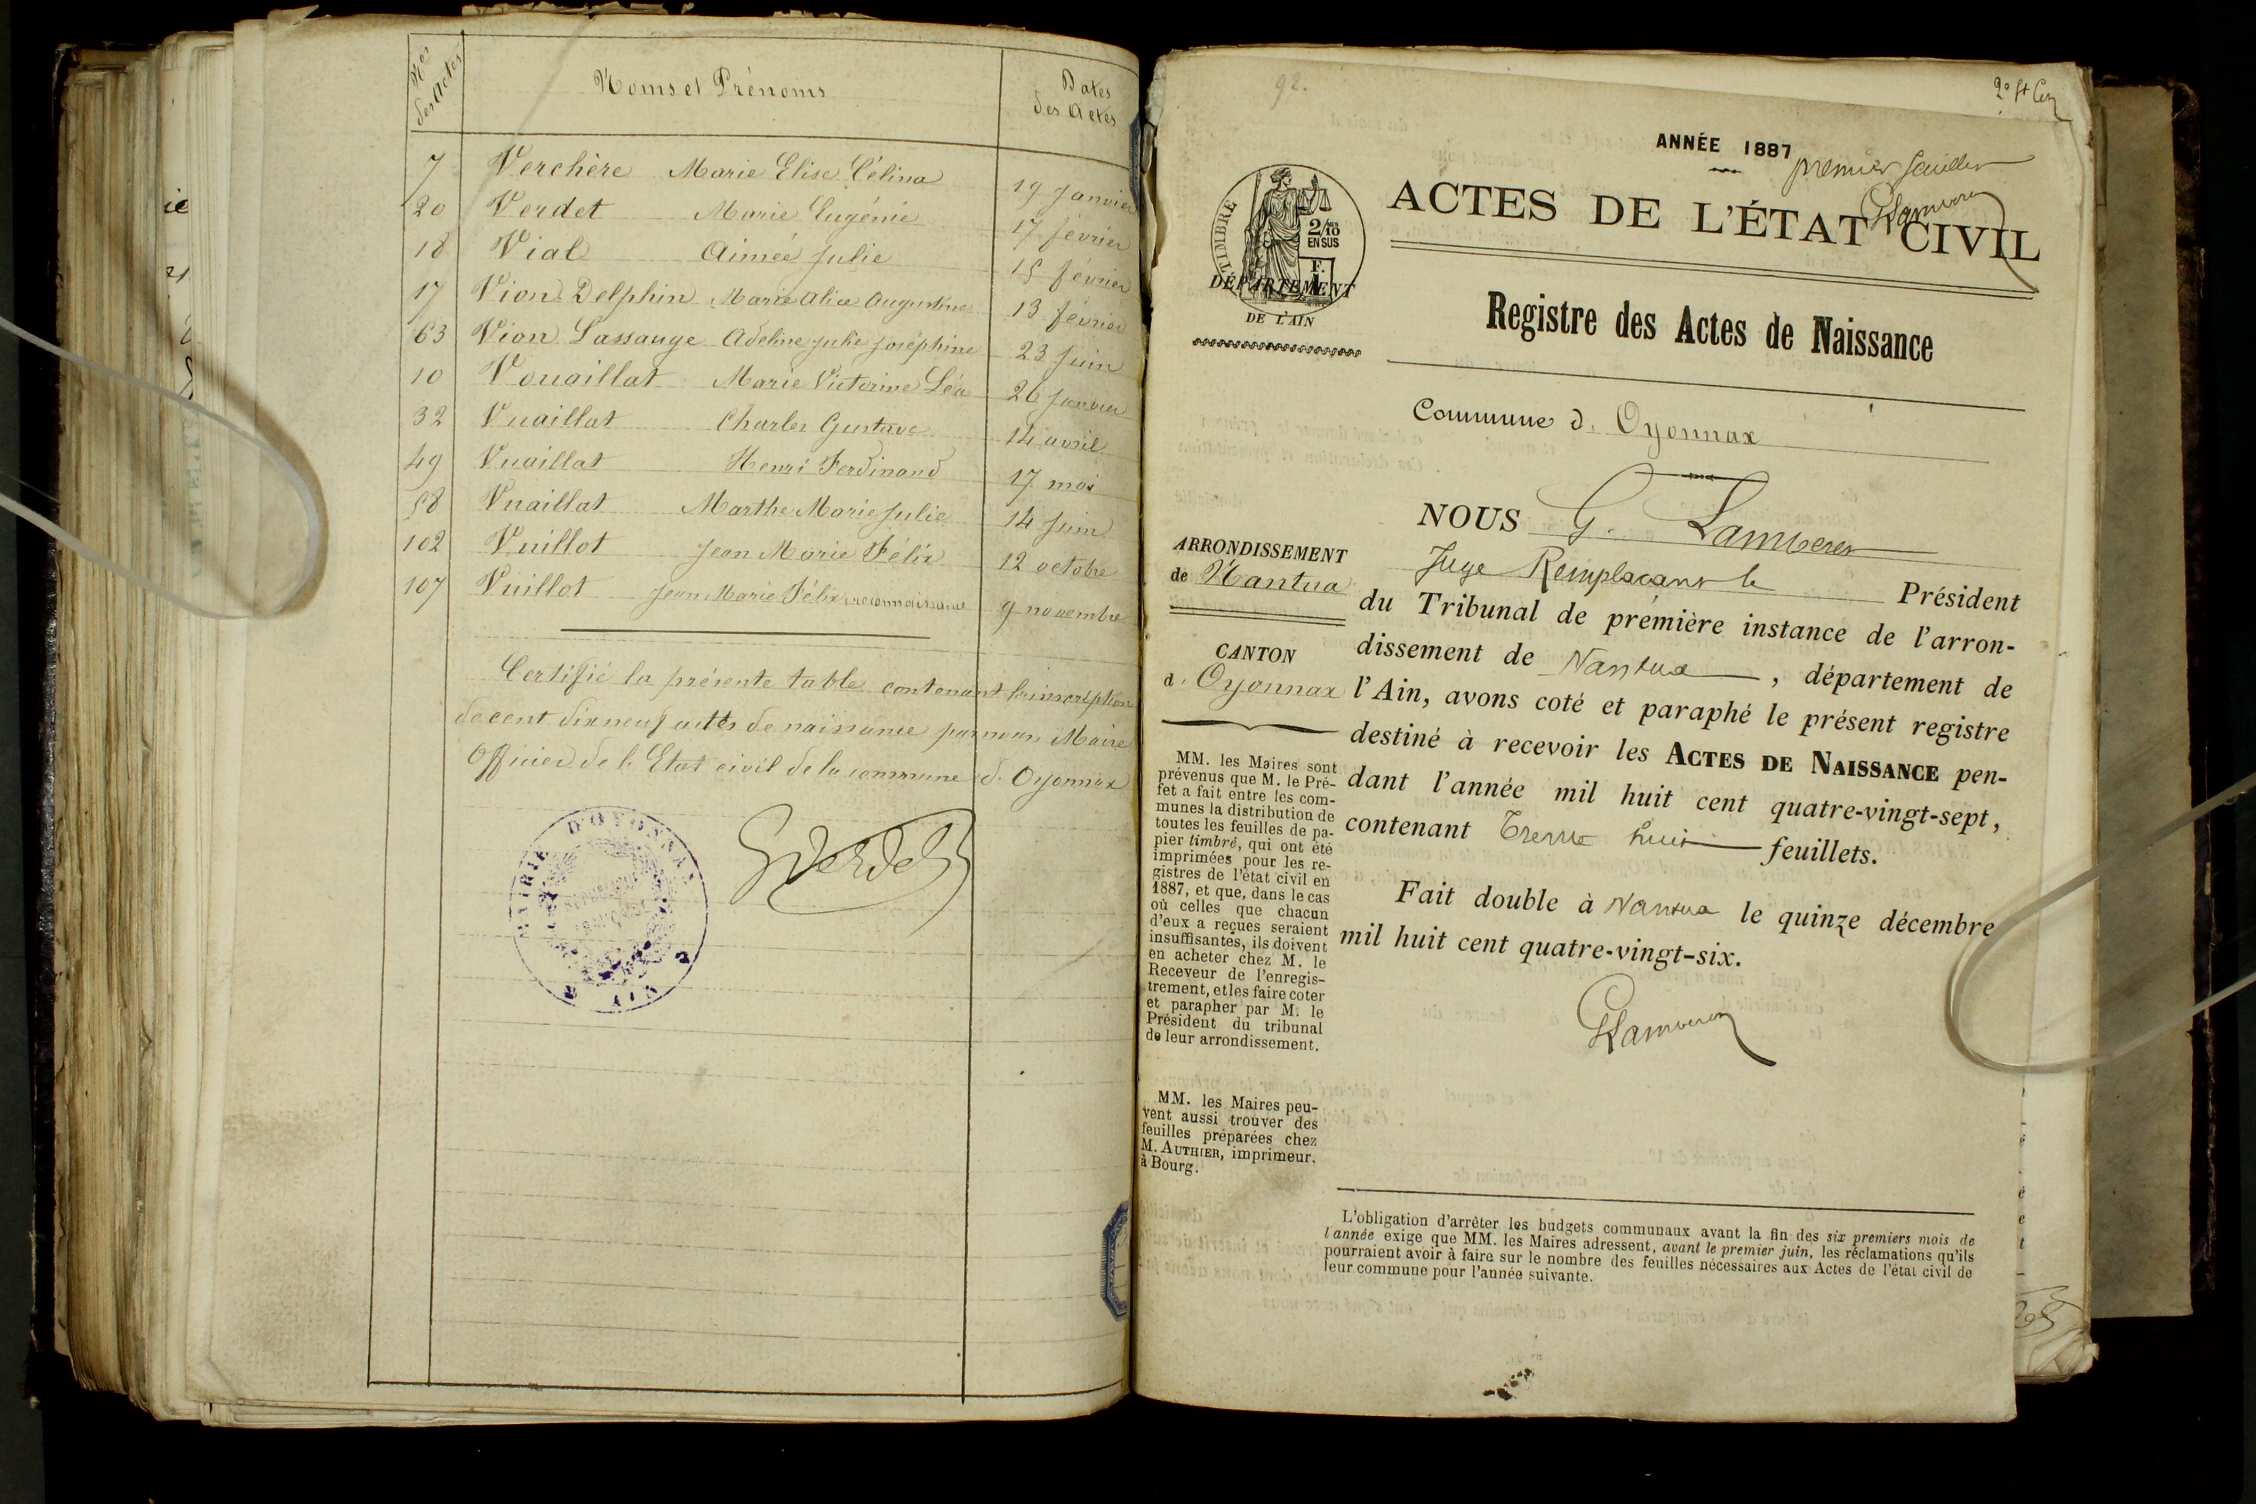 Nos des Actes
Noms et Prénoms
Dates des Actes
7 Verchère Marie Elise Célina 19 Janvier
20 Verdet Marie Eugénie 17 février
18 Vial Aimée Julie 15 février
17 Vion Delphin Marie Alice Augustine 13 février
63 Vion Lassauge Adeline Julie Joséphine 23 Juin
10 Vouaillat Marie Victorine Léa 26 Janvier
32 Vuaillat Charles Gustave 14 avril
49 Vuaillat Henri Ferdinand 17 mai
58 Vuaillat Marthe Marie Julie 14 Juin
102 Vuillot Jean Marie Félix 12 octobre
107 Vuillot Jean Marie Félix reconnaissance 9 novembre
Certifié la présente table contenant l'inscription
de cent dix neuf actes de naissance par nous Maire
Officier de l'Etat civil de la commune d'Oyonnax
MAIRIE D'OYONNAX
AIN
Verdet
92.
ANNÉE 1887
premier feuillet
ACTES DE L'ÉTAT CIVIL
TIMBRE
2/10
EN SUS
F.
1
DÉPARTEMENT
DE L'AIN
Registre des Actes de Naissance
Commune d' Oyonnax
NOUS G.
Juge Remplaçant le Président
du Tribunal de première instance de l'arron-
dissement de Nantua, département de
l'Ain, avons coté et paraphé le présent registre
destiné à recevoir les ACTES DE NAISSANCE pen-
dant l'année mil huit cent quatre-vingt-sept,
contenant Trente huit feuillets.
Fait double à Nantua le quinze décembre
mil huit cent quatre-vingt-six.
ARRONDISSEMENT
de Nantua
CANTON
d' Oyonnax
MM. les Maires sont
prévenus que M. le Pré-
fet a fait entre les com-
munes la distribution de
toutes les feuilles de pa-
pier timbré, qui ont été
imprimées pour les re-
gistres de l'état civil en
1887, et que, dans le cas
où celles que chacun
d'eux a reçues seraient
insuffisantes, ils doivent
en acheter chez M. le
Receveur de l'enregis-
trement, et les faire coter
et parapher par M. le
Président du tribunal
de leur arrondissement.
MM. les Maires peu-
vent aussi trouver des
feuilles préparées chez
M. AUTHIER, imprimeur,
à Bourg.
L'obligation d'arrêter les budgets communaux avant la fin des six premiers mois de
l'année exige que MM. les Maires adressent, avant le premier juin, les réclamations qu'ils
pourraient avoir à faire sur le nombre des feuilles nécessaires aux Actes de l'état civil de
leur commune pour l'année suivante.